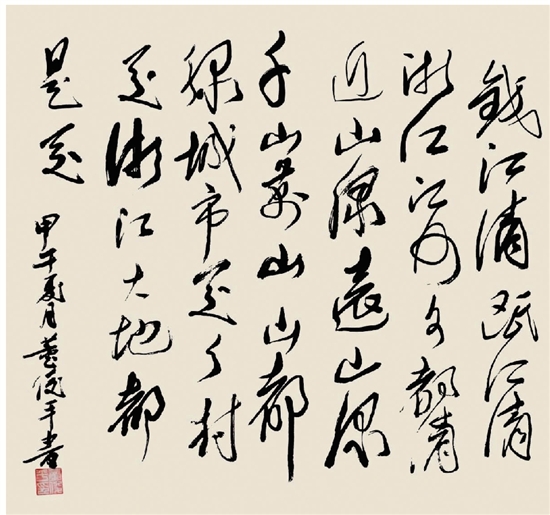 钱江清瓯江清
浙江江河都清
近山绿远山绿
千山萬山山都
绿城市美乡村
美浙江大地都
是美
甲午夏月董俊平书